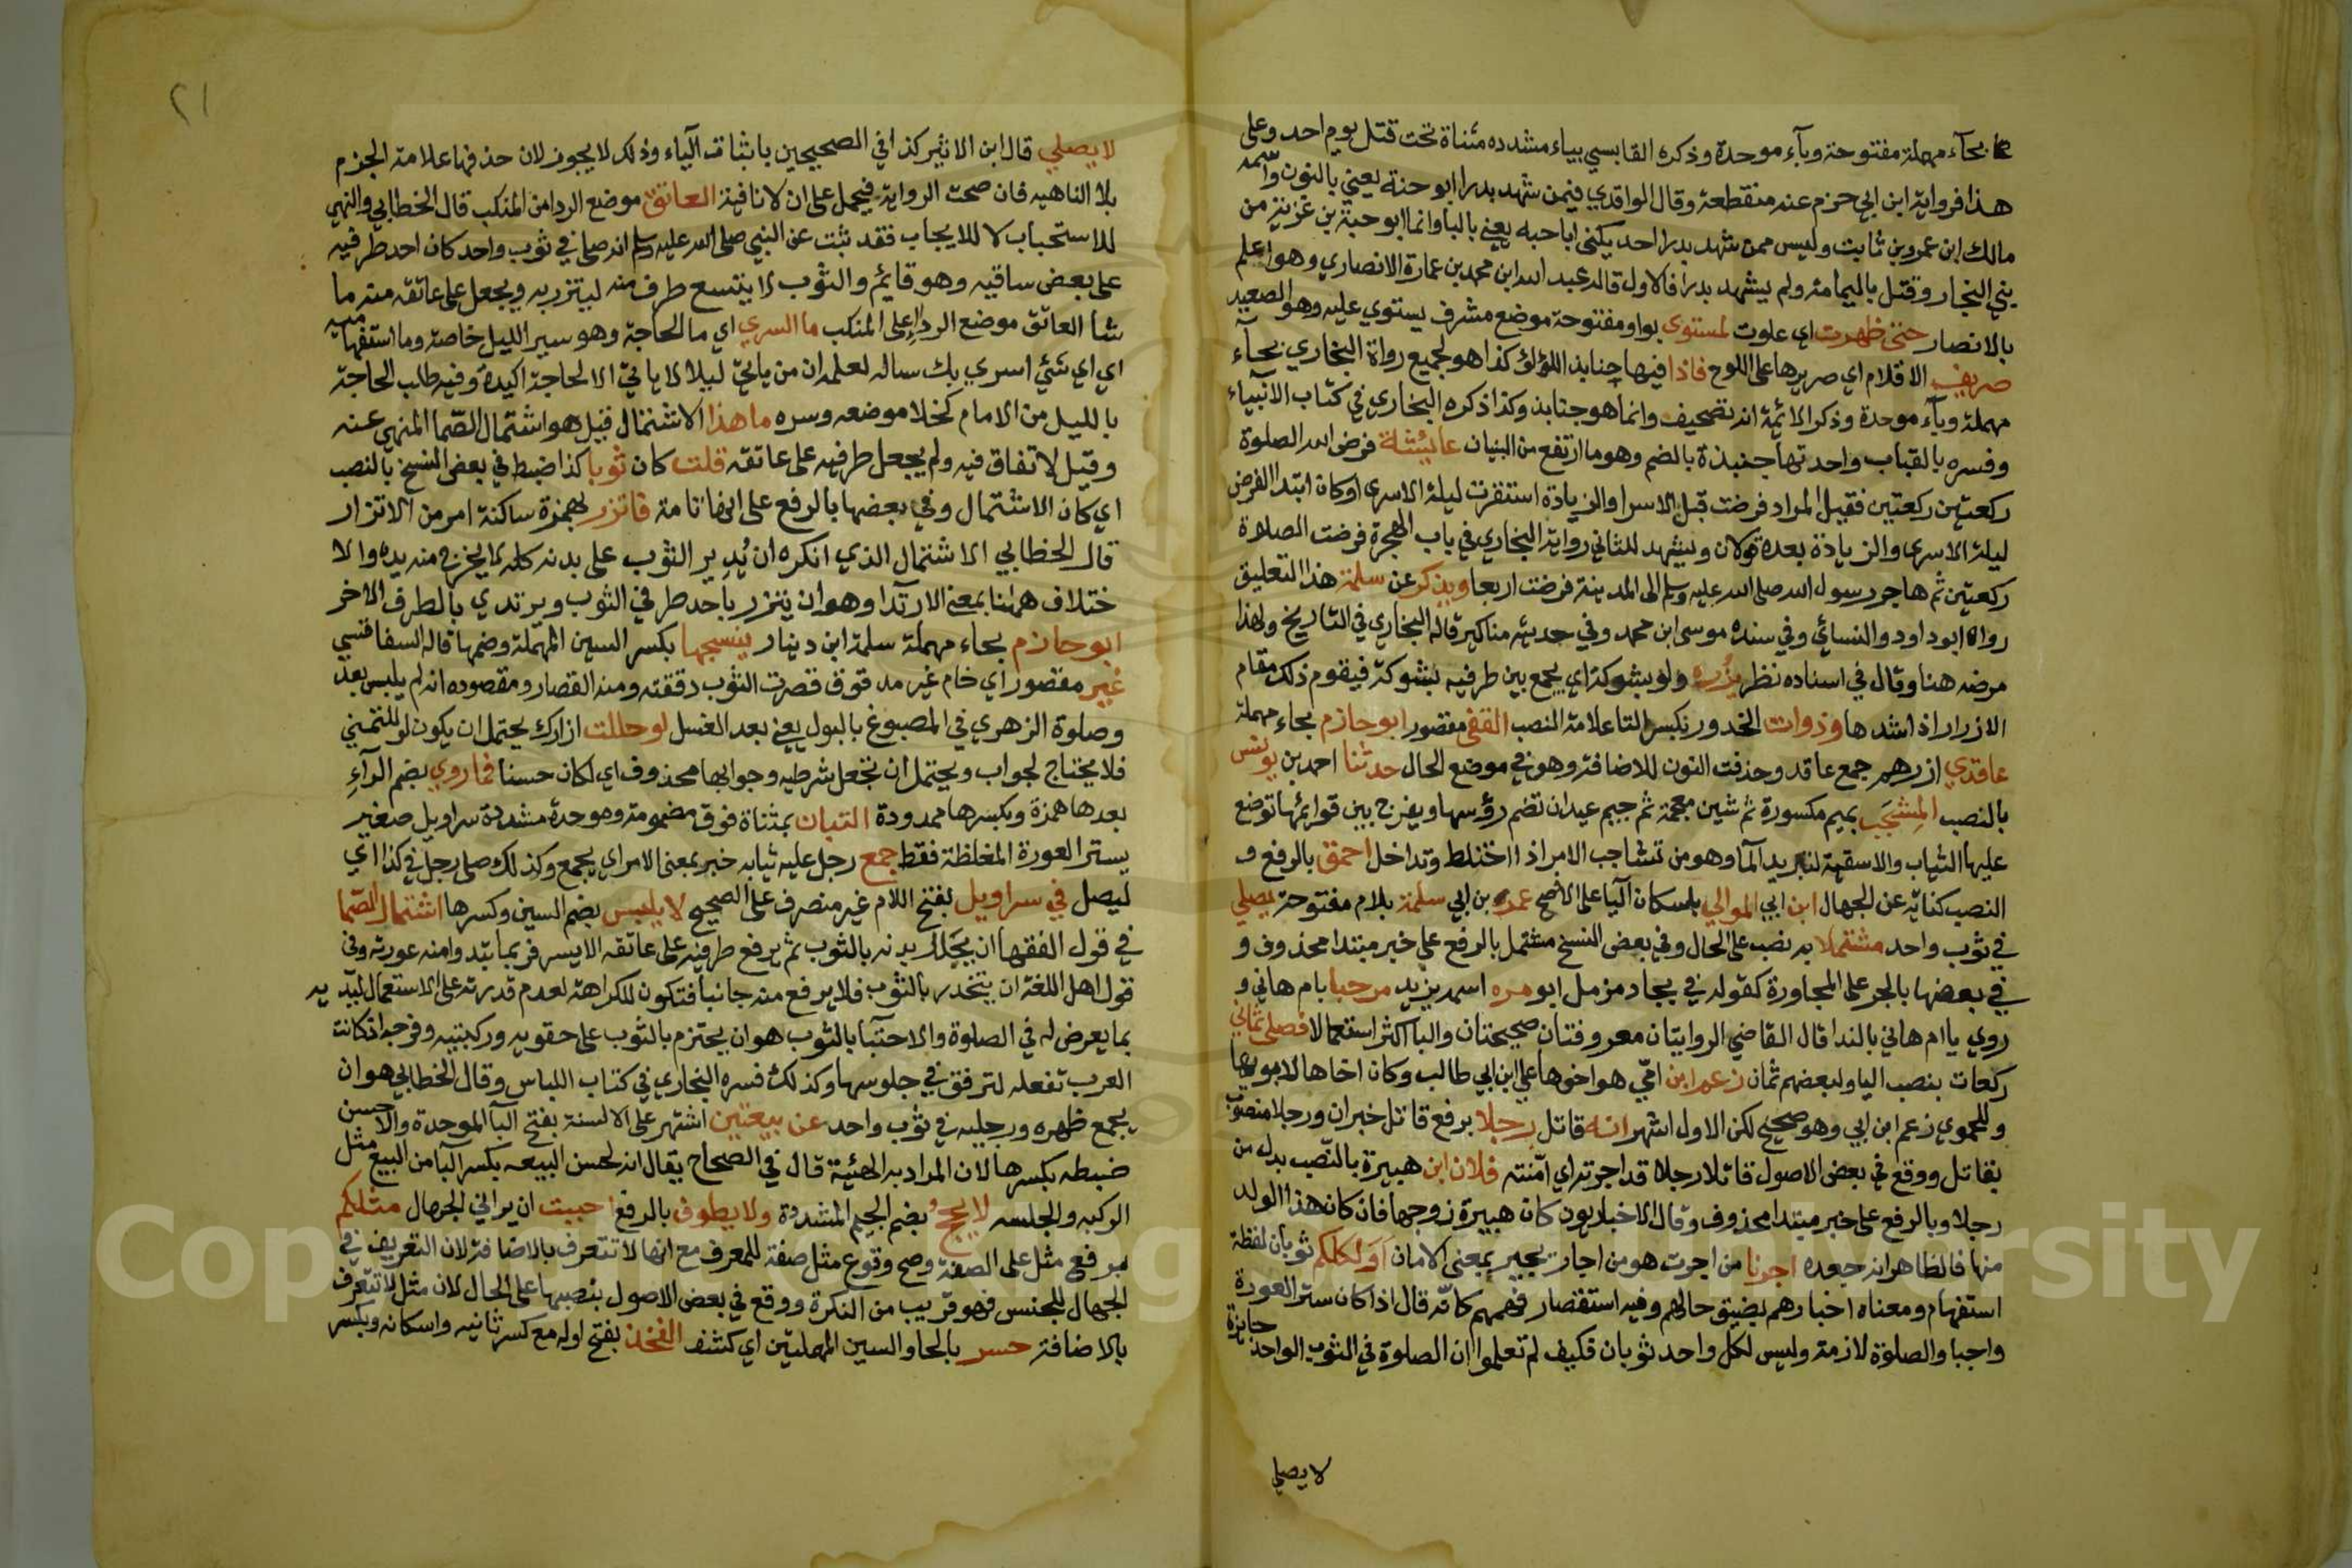 بحآء مهملة مفتوحة وبآء موحدة وذكره القابسي بياء مشدده مثناة تحت قتل يوم احد وعلى
هذا فرواية ابن ابي حزم عنه منقطعة وقال الواقدي فيمن شهد بدرا ابو حنة يعني بالنون واسمه
مالك ابن عمرو بن ثابت وليس ممن شهد بدرا احد يكنى ابا حبه يعني بالبا وانما ابو حبة بن غزية من
بني النجار وقتل باليمامة ولم يشهد بدرا فالاول قاله عبد الله ابن محمد بن عمارة الانصاري وهو اعلم
بالانصار حتى ظهرت اي علوت لمستوى بواو مفتوحة موضع مشرف يستوي عليه وهو الصعيد
صريف الاقلام اي صريرها على اللوح فاذا فيها جنابذ اللؤلؤ كذا هو لجميع رواة البخاري بحآء
مهملة وبآء موحدة وذكر الائمة انه تصحيف وانما هو جنابذ وكذا ذكره البخاري في كتاب الانبياء
وفسره بالقباب واحدتها جنبذة بالضم وهو ما ارتفع من البنيان عائيشة فرض الله الصلوة
ركعتين ركعتين فقيل المراد فرضت قبل الاسرا والزيادة استقرت ليلة الاسرى او كان ابتدا الفرض
ليلة الاسرى والزيادة بعده قولان ويشهد للثاني رواية البخاري في باب الهجرة فرضت الصلاة
ركعتين ثم هاجر رسول الله صلى الله عليه وسلم الى المدينة فرضت اربعا ويذكر عن سلمة هذا التعليق
رواه ابو داود والنسائي وفي سنده موسى ابن محمد وفي حديثه مناكير قاله البخاري في التاريخ ولهذا
مرضه هنا وقال في اسناده نظر يزره ولو بشوكة اي يجمع بين طرفيه بشوكة فيقوم ذلك مقام
الازرار اذا شدها وذوات الخدور بكسر التا علامة النصب القفى مقصور ابو حازم بحاء مهملة
عاقدي ازرهم جمع عاقد وحذفت النون للاضافة وهو في موضع الحال حدثنا احمد بن يونس
بالنصب المِشجَب بميم مكسورة ثم شين معجمة ثم جيم عيدان تضم رؤسها ويفرج بين قوائمها توضع
عليها الثياب والاسقية لتبريد المآ وهو من تشاجب الامر اذا اختلط وتداخل احمق بالرفع و
النصب كناية عن الجهال ابن ابي الموالي باسكان اليا على الاصح عمر بن ابي سلمة بلام مفتوحة يصلي
في ثوب واحد مشتملا به نصب على الحال وفي بعض النسخ مشتمل بالرفع على خبر مبتدا محذوف و
في بعضها بالجر على المجاورة كقوله في بجاد مزمل ابو مره اسمه يزيد مرحبا بام هاني و
روي يا ام هاني بالندا قال القاضي الروايتان معروفتان صحيحتان والبا اكثر استعمالا فصلى ثماني
ركعات بنصب اليا ولبعضهم ثمان زعم ابن امّي هو اخوها علي ابن ابي طالب وكان اخاها لابويها
وللحموي زعم ابن ابي وهو صحيح لكن الاول اشهر انه قاتل رجلا برفع قاتل خبر ان ورجلا منصوب
بقاتل ووقع في بعض الاصول قاتلا رجلا قد اجرته اي امّنته فلان ابن هبيرة بالنّصب بدل من
رجلا وبالرفع على خبر مبتدا محذوف وقال الاخباريون كان هبيرة زوجها فان كان هذا الولد
منها فالظاهر انه جعده اجرنا من اجرت هو من اجار يجير بمعنى الامان اَوَلكلكم ثوبان لفظة
استفهام ومعناه اخبارهم بضيق حالهم وفيه استقصار فهمهم كانّه قال اذا كان ستر العورة
واجبا والصلوة لازمة وليس لكل واحد ثوبان فكيف لم تعلموا ان الصلوة في الثوب الواحد جائزة
لا يصلي
٢١
لا يصلي قال ابن الاثير كذا في الصحيحين باثبات اليآء وذلك لا يجوز لان حذفها علامة الجزم
بلا الناهيه فان صحت الرواية فيحمل على ان لا نافية العاتق موضع الردا من المنكب قال الخطابي والنهي
للاستحباب لا للايجاب فقد ثبت عن النبي صلى الله عليه وسلم انه صلى في ثوب واحد كان احد طرفيه
على بعض ساقيه وهو قايم والثوب لا يتسع طرف منه ليتزر به ويجعل على عاتقه منه ما
شا العاتق موضع الردا على المنكب ما السري اي ما الحاجة وهو سير الليل خاصة وما استفهامية
اي اي شئي اسري بك ساله لعلمه ان من ياتي ليلا لا ياتي الا لحاجة اكيدة وفيه طلب الحاجة
بالليل من الامام لخلا موضعه وسره ما هذا الاشتمال قيل هو اشتمال الصّما المنهي عنه
وقيل لاتفاق فيه ولم يجعل طرفيه على عاتقه قلت كان ثوبا كذا ضبط في بعض النسخ بالنصب
اي كان الاشتمال وفي بعضها بالرفع على انها تامة فاتزر بهمزة ساكنة امر من الاتزار
قال الخطابي الاشتمال الذي انكره ان يُدِير الثوب على بدنه كله لا يخرج منه يده والا
ختلاف هنا بمعنى الارتدا وهو ان يتزر باحد طرفي الثوب ويرتدي بالطرف الاخر
ابو حازم بحاء مهملة سلمة ابن دينار ينسجها بكسر السين المهملة وضمها قاله السفاقسي
غير مقصور اي خام غير مدقوق قصرت الثوب دققته ومنه القصار ومقصوده انه لم يلبس بعد
وصلوة الزهري في المصبوغ بالبول يعني بعد الغسل لو حللت ازارك يحتمل ان يكون لو للتمني
فلا يحتاج لجواب ويحتمل ان تجعل شرطيه وجوابها محذوف اي لكان حسنا فما روي بضم الرآءِ
بعدها همزة وبكسرها ممدودة التبان بمثناة فوق مضمومة وموحدة مشددة سراويل صغير
يستر العورة المغلظة فقط جمع رجل عليه ثيابه خبر بمعنى الامر اي يجمع وكذلك صلى رجل في كذا اي
ليصل في سراويل بفتح اللام غير منصرف على الصحيح لا يلبس بضم السين وكسرها اشتمال الصّما
في قول الفقها ان يجلل بدنه بالثوب ثم يرفع طرفيه على عاتقه الايسر فربما تبدو منه عورته وفي
قول اهل اللغة ان يتخدر بالثوب فلا يرفع منه جانبا فتكون الكراهة لعدم قدرته على الاستعمال ليديه
بما يعرض له في الصلوة والاحتبآ بالثوب هو ان يحتزم بالثوب على حقويه وركبتيه وفرجه اذ كانت
العرب تفعله لترفق في جلوسها وكذلك فسره البخاري في كتاب اللباس وقال الخطابي هو ان
يجمع ظهره ورجليه في ثوب واحد عن بيعتين اشتهر على الالسنة بفتح البآ الموحدة والاحسن
ضبطه بكسرها لان المراد به الهيئة قال في الصحاح يقال انه لحسن البيعه بكسر البآ من البيع مثل
الركبه والجلسه لا يحج بضم الجيم المشددة ولا يطوف بالرفع احببت ان يراني الجهال مثلكم
برفع مثل على الصفة وصح وقوع مثل صفة للمعرف مع انها لا تتعرف بالاضافة لان التعريف في
الجهال للجنس فهو قريب من النكرة ووقع في بعض الاصول بنصبها على الحال لان مثل لا تتعرف
بالاضافة حسر بالحا والسين المهملتين اي كشف الفخذ بفتح اوله مع كسر ثانيه واسكانه وبكسر